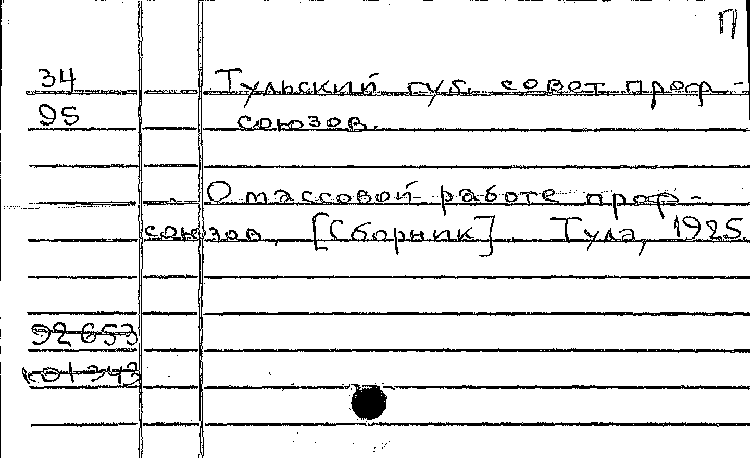 П
34 Тульский губ. совет проф-
95 союзов.
О массовой работе проф-
союзов. [Сборник]. Тула, 1925.
92653